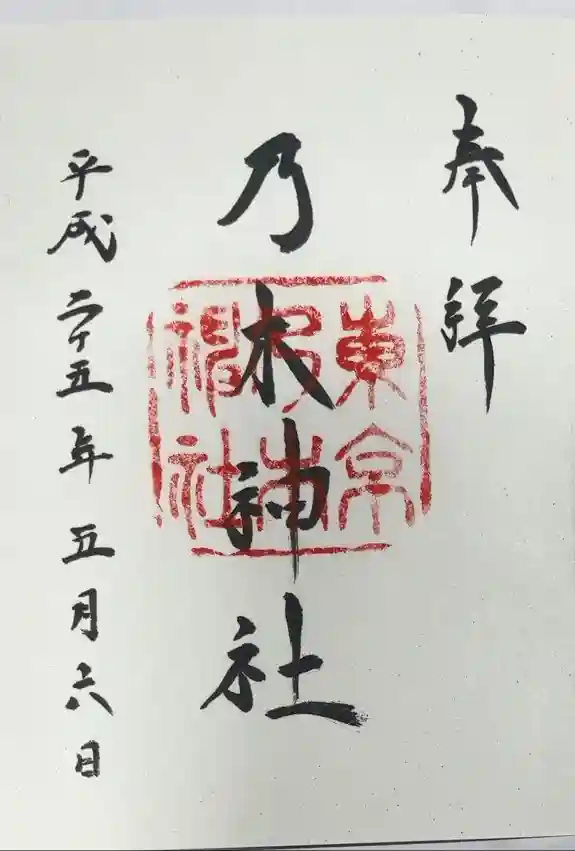 奉拝
乃木神社
東京
乃木
神社
平成二十五年五月六日